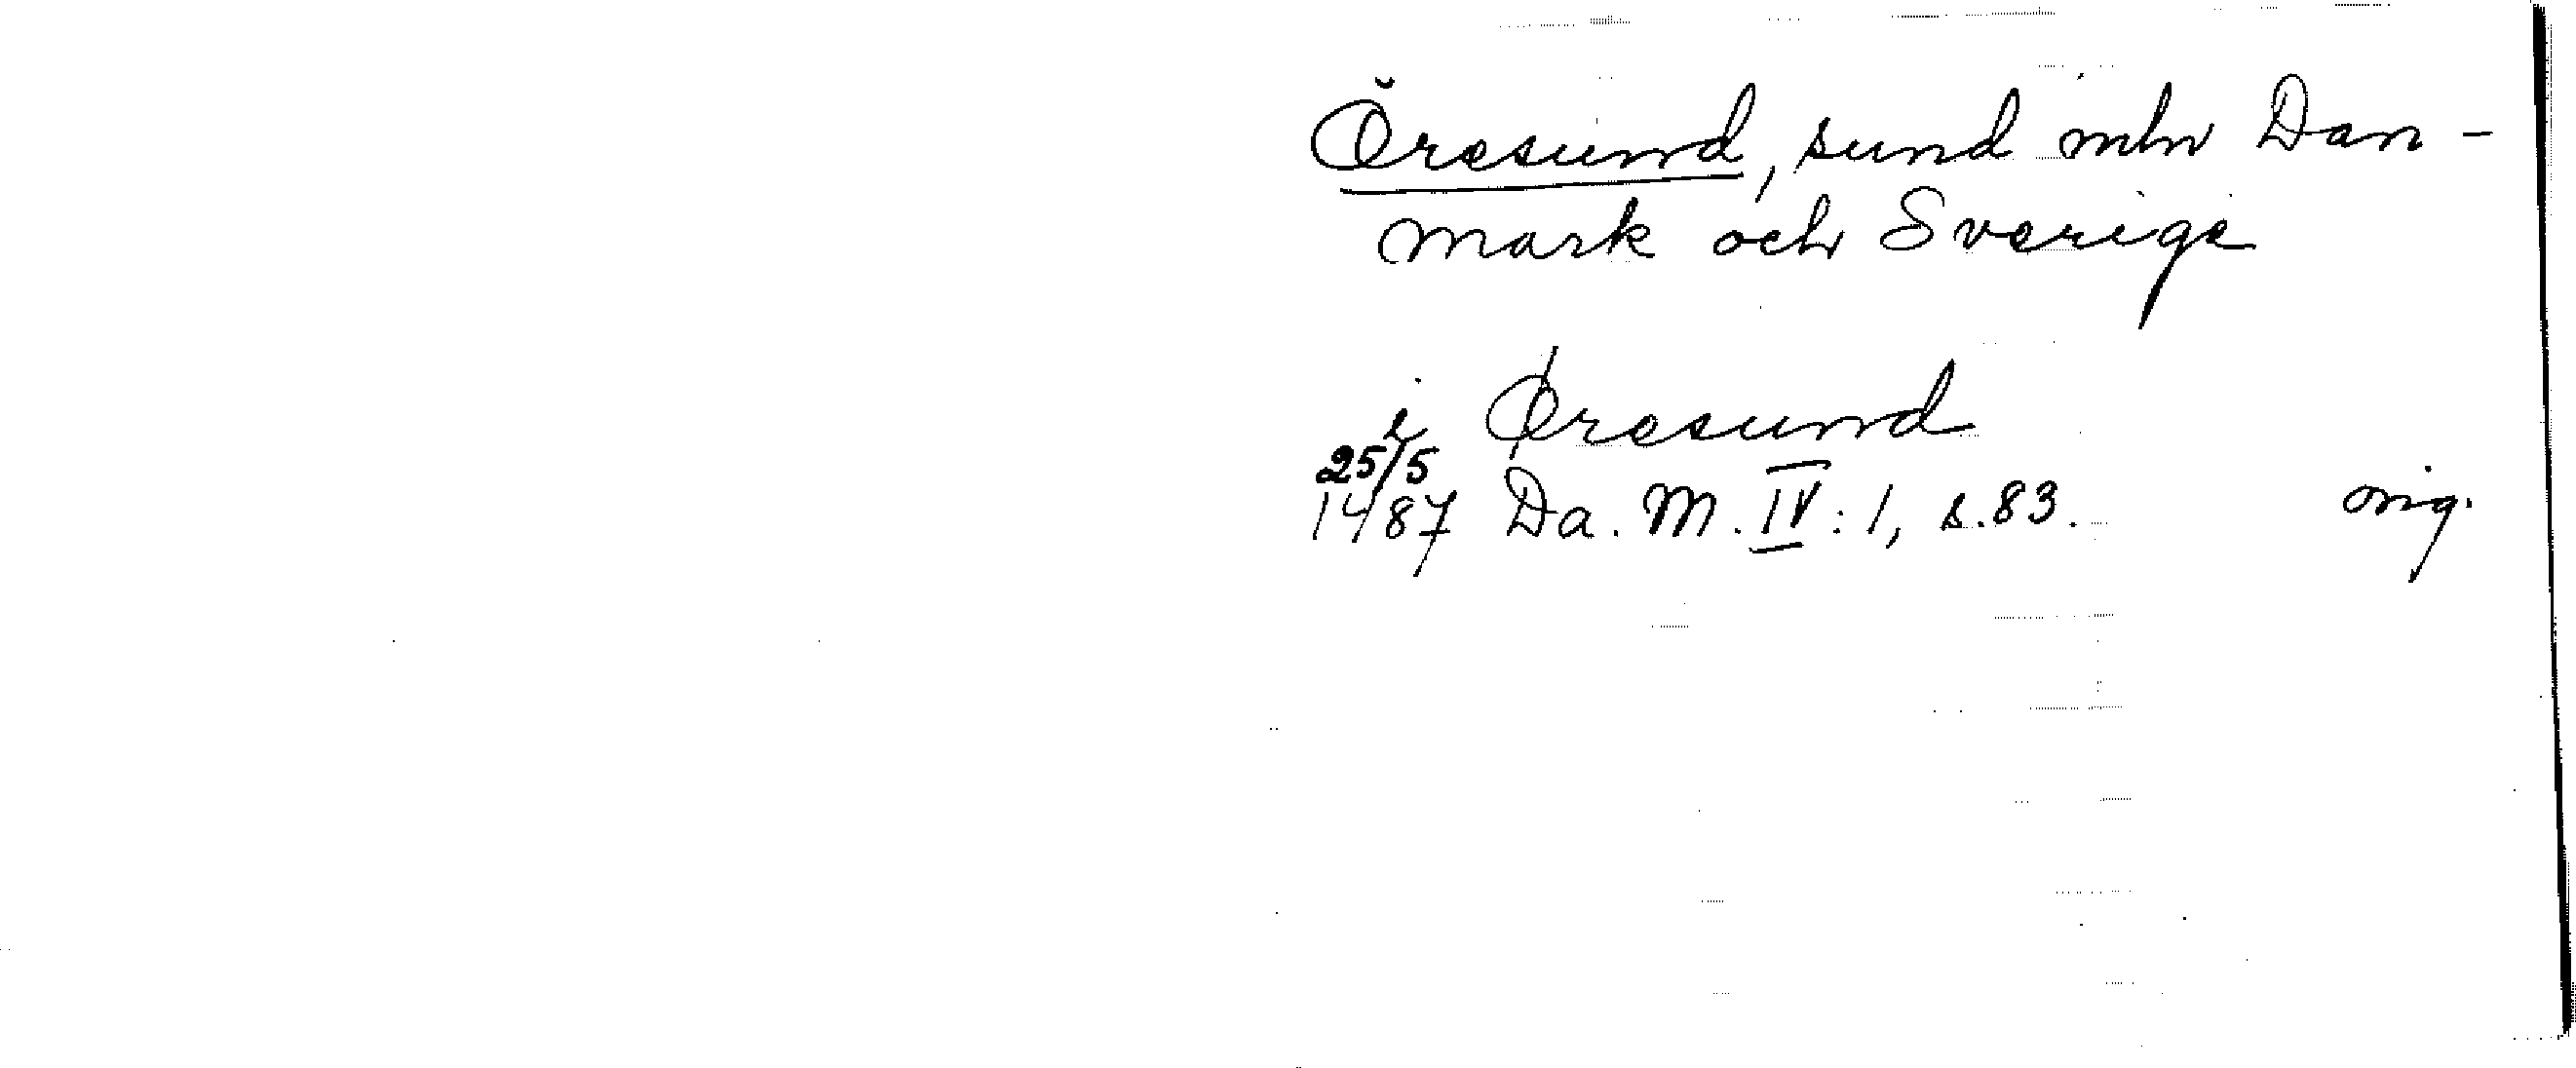 Öresund, sund mln Dan-
mark och Sverige
i Øresund
25/5
1487 Da. M. IV: 1, s. 83. orig.